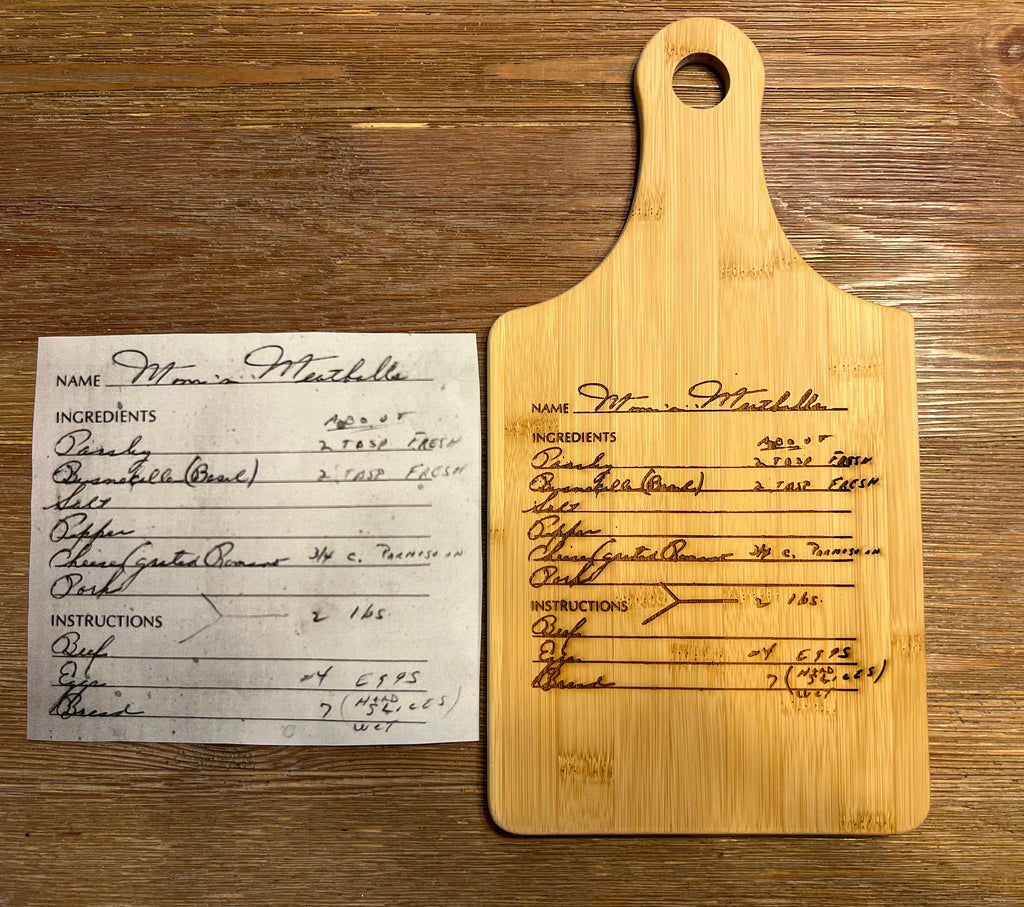 NAME Mom's Meatballs
INGREDIENTS ABOUT
Parsley 2 TBSP FRESH
(Basil) 2 TBSP FRESH
Salt
Pepper
Cheese (grated Romano 3/4 c. PARMESOAN
Pork
INSTRUCTIONS 2 lbs.
Beef
Eggs -4 EGGS
Bread 7 (HARD SLICES)
WET
NAME Mom's Meatballs
INGREDIENTS ABOUT
Parsley 2 TBSP FRESH
(Basil) 2 TBSP FRESH
Salt
Pepper
Cheese (grated Romano 3/4 c. PARMESOAN
Pork
INSTRUCTIONS 2 lbs.
Beef
Eggs -4 EGGS
Bread 7 (HARD SLICES)
WET